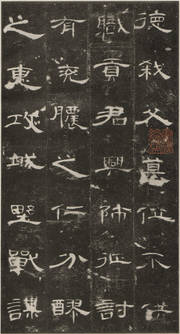 德弑父篡位不供
職貢君興師征討
有兗膿之仁分醪
之惠攻城野戰謀